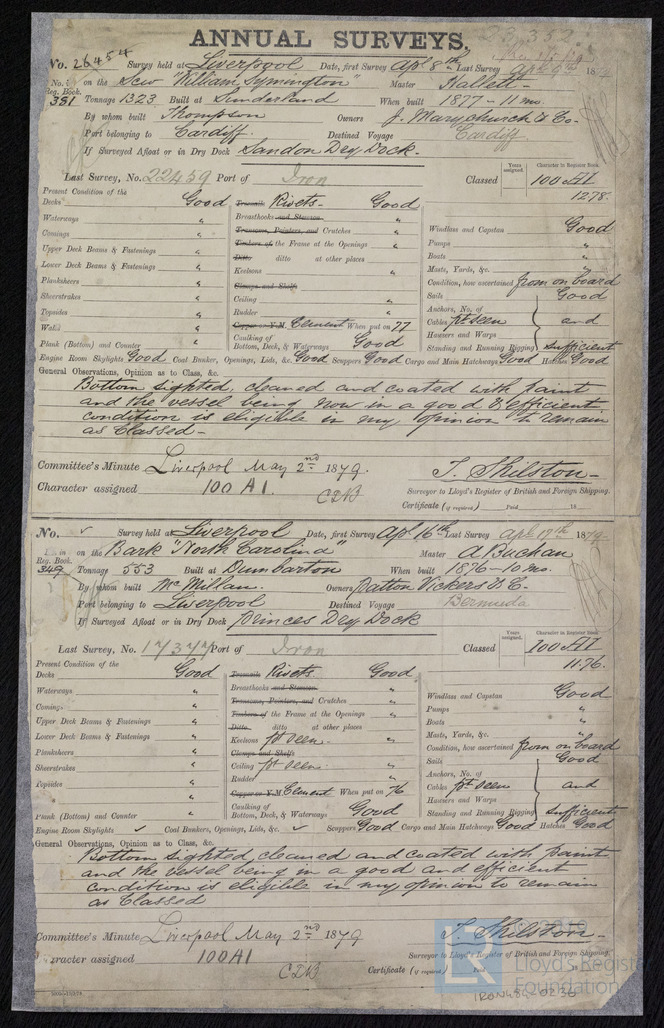 ANNUAL SURVEYS.
No. 26454 Survey held at Liverpool Date, first Survey Apl 8th Last Survey Apl 9th 187
No. in Reg. Book. on the Scw "William Symington" Master Hallett
381 Tonnage 1323 Built at Sunderland When built 1877-11 mo.
By whom built Thompson Owners J. Marychurch & Co.
Port belonging to Cardiff. Destined Voyage Cardiff
If Surveyed Afloat or in Dry Dock Sandon Dry Dock.
Last Survey, No. 22459 Port of Iron Classed Years assigned. Character in Register Book. 100 A1
12.78.
Present Condition of the
Decks Good Treenails Rivets Good
Waterways " Breasthooks and Stemson "
Comings " Transoms, Pointers, and Crutches " Windlass and Capstan Good
Upper Deck Beams & Fastenings " Timbers of the Frame at the Openings " Pumps "
Lower Deck Beams & Fastenings " Ditto ditto at other places Boats "
Planksheers " Keelsons " Masts, Yards, &c. "
Sheerstrakes " Clamps and Shelfs Condition, how ascertained from on board
Topsides " Ceiling " Sails Good
Wales " Rudder " Anchors, No. of
Copper or Y.M. Cement When put on 77 Cables pt seen and
Plank (Bottom) and Counter " Caulking of Bottom, Deck, & Waterways Good Hawsers and Warps
Standing and Running Rigging sufficient
Engine Room Skylights Good Coal Bunker, Openings, Lids, &c. Good Scuppers Good Cargo and Main Hatchways Good Hatches Good
General Observations, Opinion as to Class, &c.
Bottom sighted, cleaned and coated with paint
and the vessel being now in a good & efficient
condition is eligible in my opinion to remain
as Classed
Committee's Minute Liverpool May 2nd 1879. T. Shilston
Character assigned 100 A1. C2B Surveyor to Lloyd's Register of British and Foreign Shipping.
Certificate (if required) Paid 18
No. Survey held at Liverpool Date, first Survey Apl 16th Last Survey Apl 17th 1879
No. in Reg. Book. on the Bark "North Carolina" Master A Buchan
349 Tonnage 553 Built at Dumbarton When built 1876-10 mo.
By whom built McMillan. Owners Patton Vickers & C.
Port belonging to Liverpool Destined Voyage Bermuda
If Surveyed Afloat or in Dry Dock Princes Dry Dock
Last Survey, No. Port of Iron Classed Years assigned. Character in Register Book. 100 A1
11.76.
Present Condition of the
Decks Good Treenails Rivets Good
Waterways " Breasthooks and Stemson "
Comings " Transoms, Pointers, and Crutches " Windlass and Capstan Good
Upper Deck Beams & Fastenings " Timbers of the Frame at the Openings " Pumps "
Lower Deck Beams & Fastenings " Ditto ditto at other places " Boats "
Planksheers " Keelsons pt seen. Masts, Yards, &c. "
Sheerstrakes " Clamps and Shelfs Condition, how ascertained from on board
Topsides " Ceiling pt seen. Sails Good
Rudder " Anchors, No. of
Copper or Y.M. Cement When put on 76 Cables pt seen and
Plank (Bottom) and Counter " Caulking of Bottom, Deck, & Waterways Good Hawsers and Warps
Standing and Running Rigging sufficient
Engine Room Skylights Coal Bunkers, Openings, Lids, &c. Scuppers Good Cargo and Main Hatchways Good Hatches Good
General Observations, Opinion as to Class, &c.
Bottom sighted, cleaned and coated with paint
and the vessel being in a good and efficient
condition is eligible in my opinion to remain
as Classed
Committee's Minute Liverpool May 2nd 1879 T. Shilston
Character assigned 100 A1 C2B Surveyor to Lloyd's Register of British and Foreign Shipping.
Certificate (if required)
Lloyd's Register
Foundation
IRON484-0236